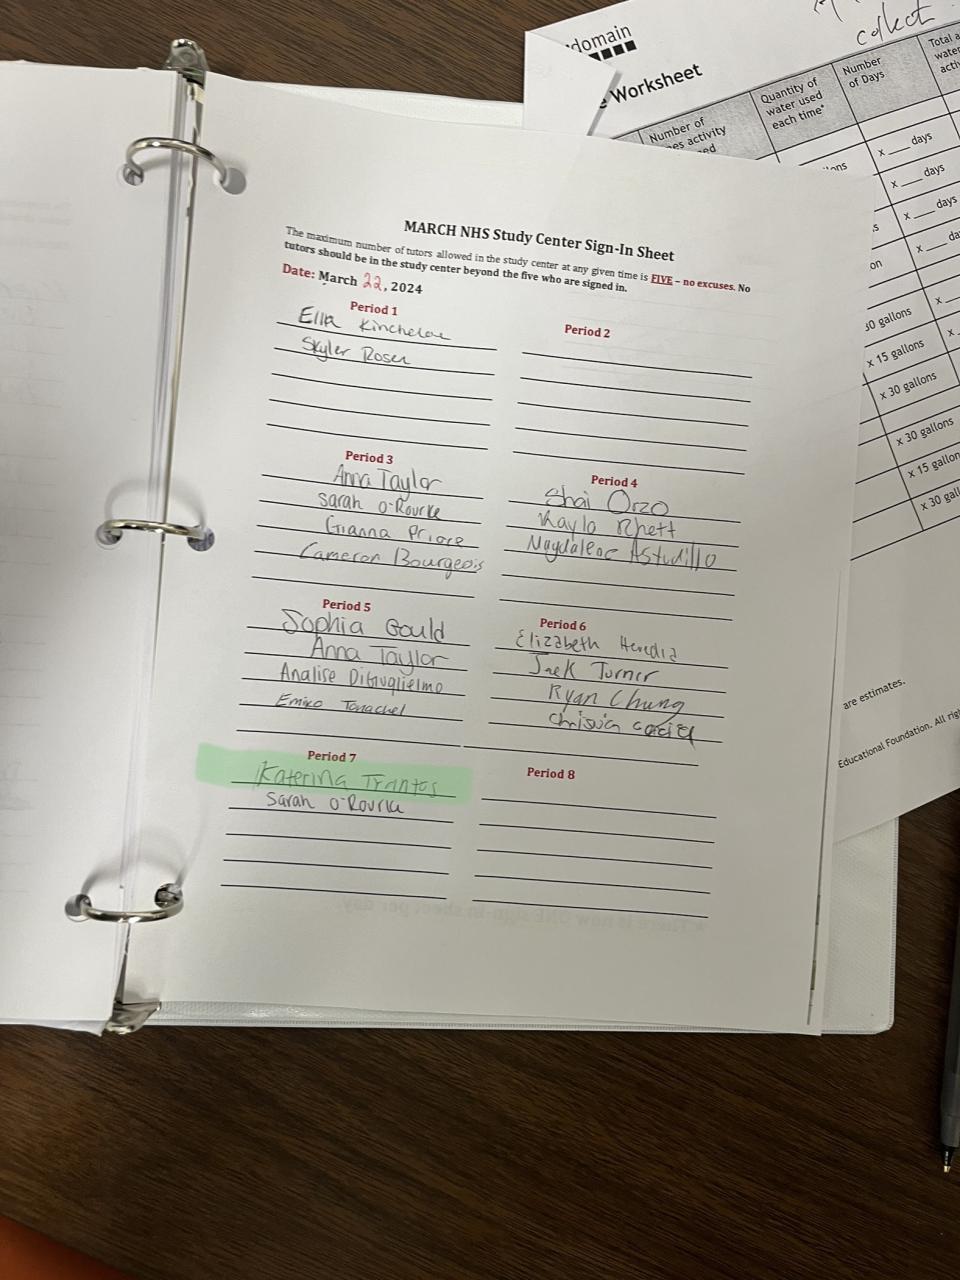 domain
Worksheet
collect
Number of
es activity
ed
Quantity of
water used
each time*
Number
of Days
Total a
water
activ
x ___ days
x ___ days
x ___ days
x ___ da
30 gallons
x 15 gallons
x 30 gallons
x 30 gallons
x 15 gallon
x 30 gal
are estimates.
Educational Foundation. All righ
MARCH NHS Study Center Sign-In Sheet
The maximum number of tutors allowed in the study center at any given time is FIVE – no excuses. No
tutors should be in the study center beyond the five who are signed in.
Date: March 22, 2024
Period 1
Ella Kincheloe
Skyler Rosen
Period 2
Period 3
Anna Taylor
Sarah O-Rourke
Gianna Priore
Cameron Bourgeois
Period 4
Shai Orzo
Kayla Rhett
Magdalena Astudillo
Period 5
Sophia Gould
Anna Taylor
Analise DiGuglielmo
Emiko
Period 6
Elizabeth Heredia
Jack Turner
Ryan Chung
Period 7
Katerina Trantos
Sarah O-Rourke
Period 8